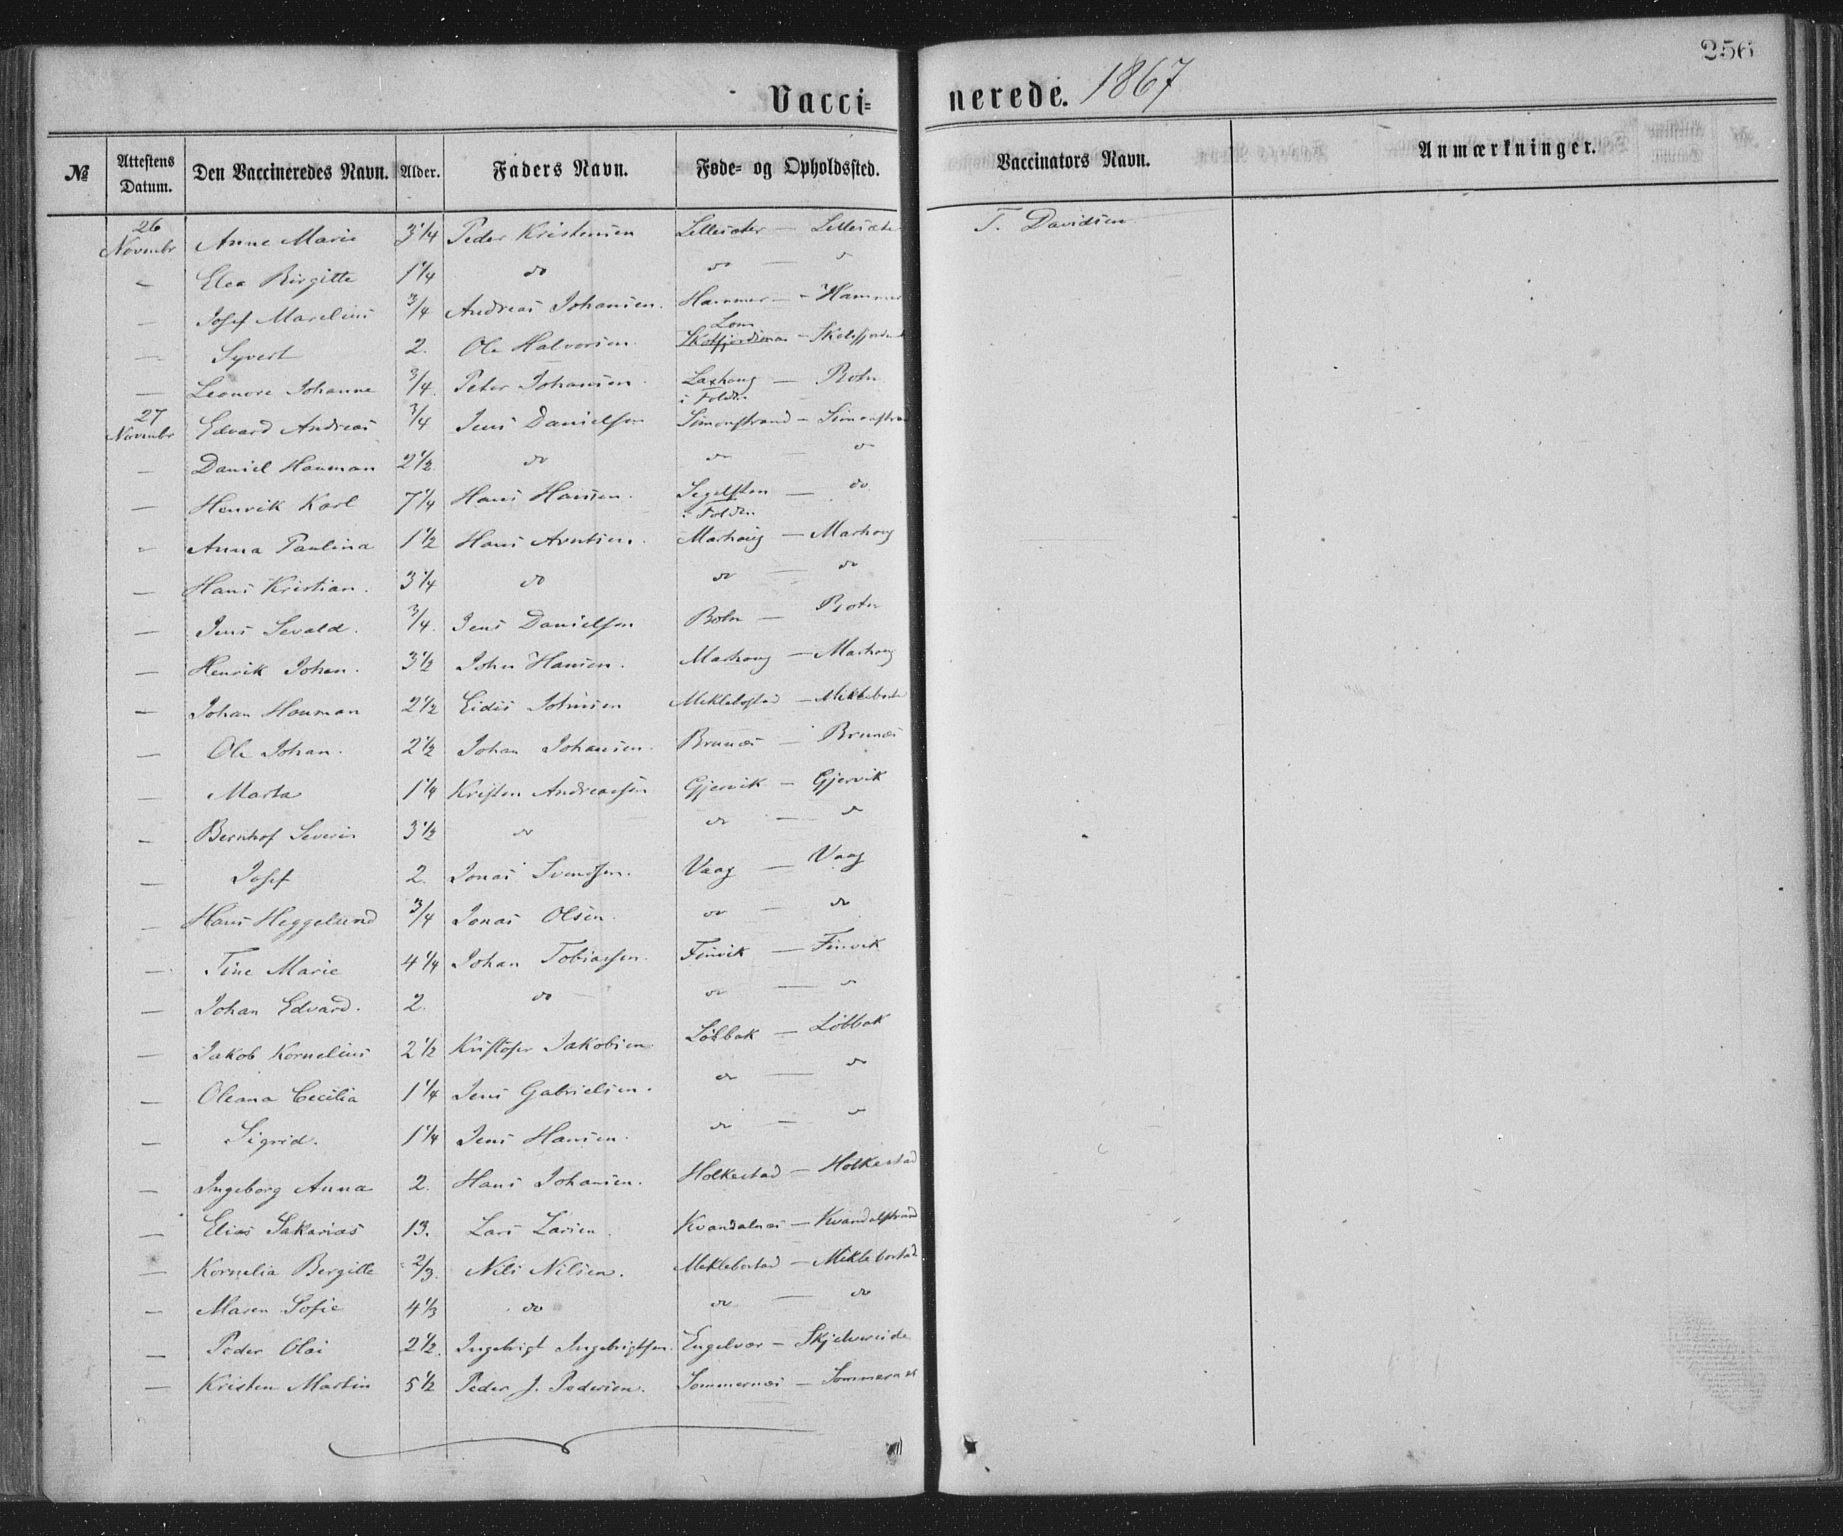 256
Vacci= nerede. 1867
№ Attestens Datum. Den Vaccineredes Navn. Alder. Faders Navn. Føde- og Opholdssted. Vaccinators Navn. Anmærkninger.
26 Novembr Anne Marie 3 1/4 Peder Kristensen Lillesæter — Lillesæte T. Davidsen
— Elea Birgitte 1 1/4 do do —
— Josef Marelius 3/4 Andreas Johansen. Hammer — Hammer
— Syvert 2. Ole Halvorsen. Lom
— Leonore Johanne 3/4 Peter Johansen. Laxhoug i Folden — Botn
27 Novembr Edvard Andreas 3/4 Jens Danielsen Simonstrand — Simonstrand
— Daniel Hauman 2 1/2 do do — do
— Henrik Karl 7 1/4 Hans Hansen. Segelsten i Folden — do
— Anna Paulina 1 1/2 Hans Arntsen. Marhoug — Marhoug
— Hans Kristian. 3 1/4 do do — do
— Jens Sevald. 3/4. Jens Danielsen Botn — Botn
— Henrik Johan. 3 1/2 John Hansen. Marhoug — Marhoug
— Johan Houman 2 1/2 Eidis Johnsen Meklebostad — Meklebosta
— Ole Johan. 2 1/2 Johan Johansen. Brunæs — Brunæs
— Marta 1 1/4 Kristen Andreassen Gjervik — Gjervik
— Bernhof Severin 3 1/2 do do — do
— Josef 2. Jonas Svendsen. Vaag — Vaag
— Hans Heggelund 3/4 Jonas Olsen. do — do
— Tine Marie 4 1/4 Johan Tobiassen. Finvik — Finvik
— Johan Edvard. 2. do — do — do
— Jakob Kornelius 2 1/2 Kristofer Jakobsen. Løbbak — Løbbak
— Oleana Cecilia 1 1/4 Jens Gabrielsen. do — do
— Sigrid. 1 1/4 Jens Hansen. do —
— Ingeborg Anna 2. Hans Johansen. Holkestad — Holkestad
— Elias Sakarias 13. Lars Larsen. Kvandalnæs — Kvandalstrand
— Kornelia Bergitte 2/3. Nils Nilsen. Meklebostad — Miklebostad
— Maren Sofie 4 1/3 do do — do
— Peder Olai 2 1/2. Ingebrigt Ingebrigtsen. Engelvær — Skjelvereide
— Kristen Martin 5 1/2 Peder J. Pedersen. Sommernæs — Sommernæs